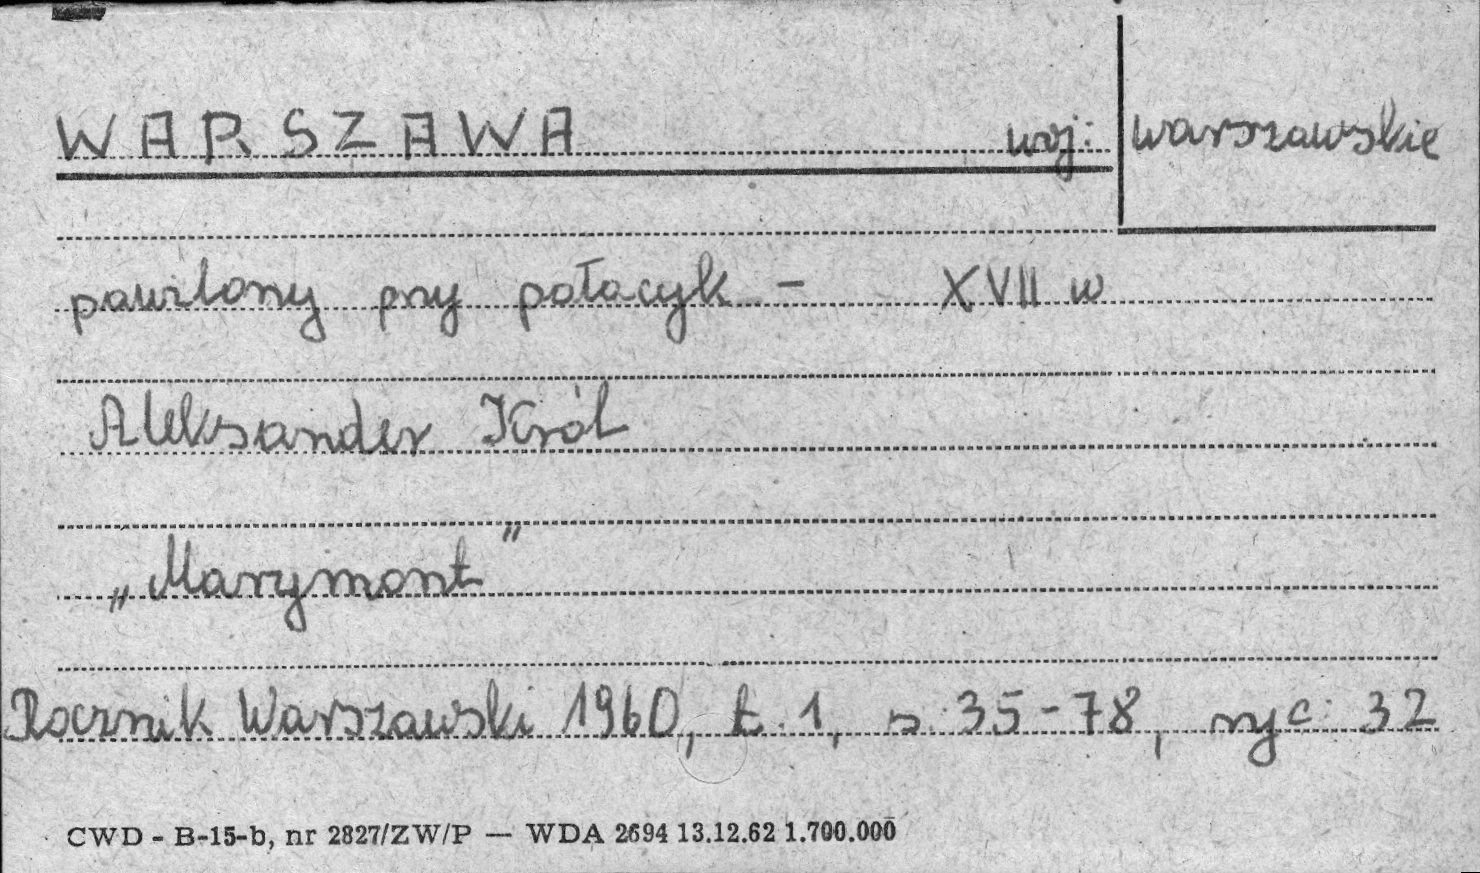 WARSZAWA woj: warszawskie
pawilony przy pałacyk - XVII w
Aleksander Król
„Marymont"
Rocznik Warszawski 1960, t. 1, s. 35-78, ryc. 32
CWD - B-15-b, nr 2827/ZW/P — WDA 2694 13.12.62 1.700.000